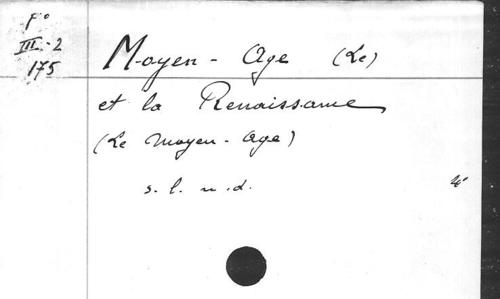 F°
III-2
175
Moyen-Age (Le)
et la Renaissance
(Le Moyen-Age)
s. l. n. d.
4°